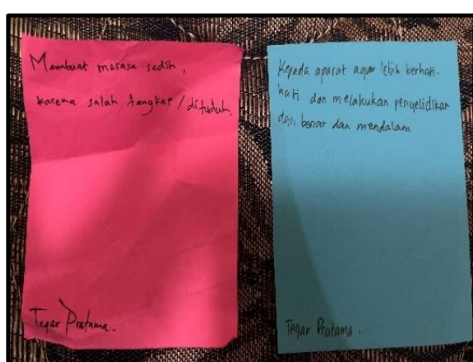 Membuat merasa sedih,
karena salah tangkap / dituduh.
Tegar Pratama.
Kepada aparat agar lebih berhati-
hati dan melakukan penyelidikan
dgn benar dan mendalam
Tegar Pratama.